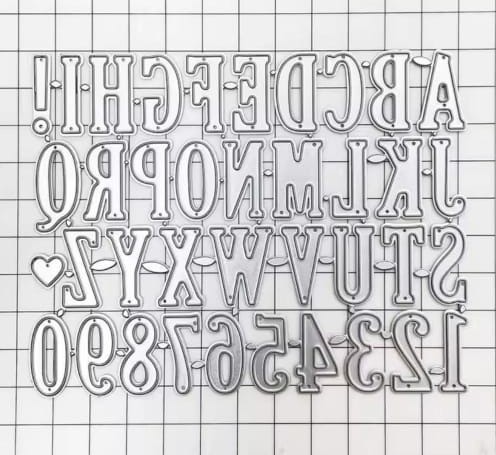 ABCDEFGHI!
JKLMNOPQRQ
STUVWXYZ
1234567890